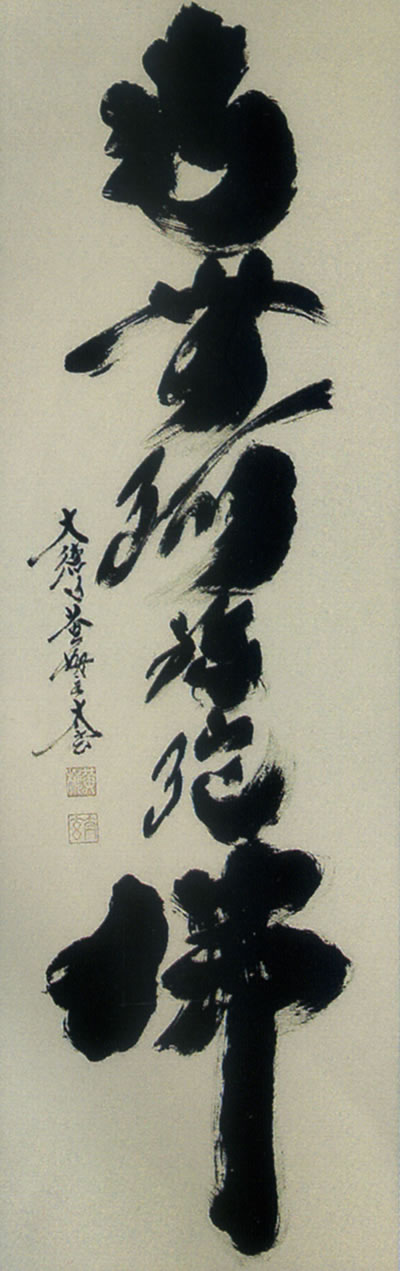 南無阿弥陀佛
大徳寺黄梅